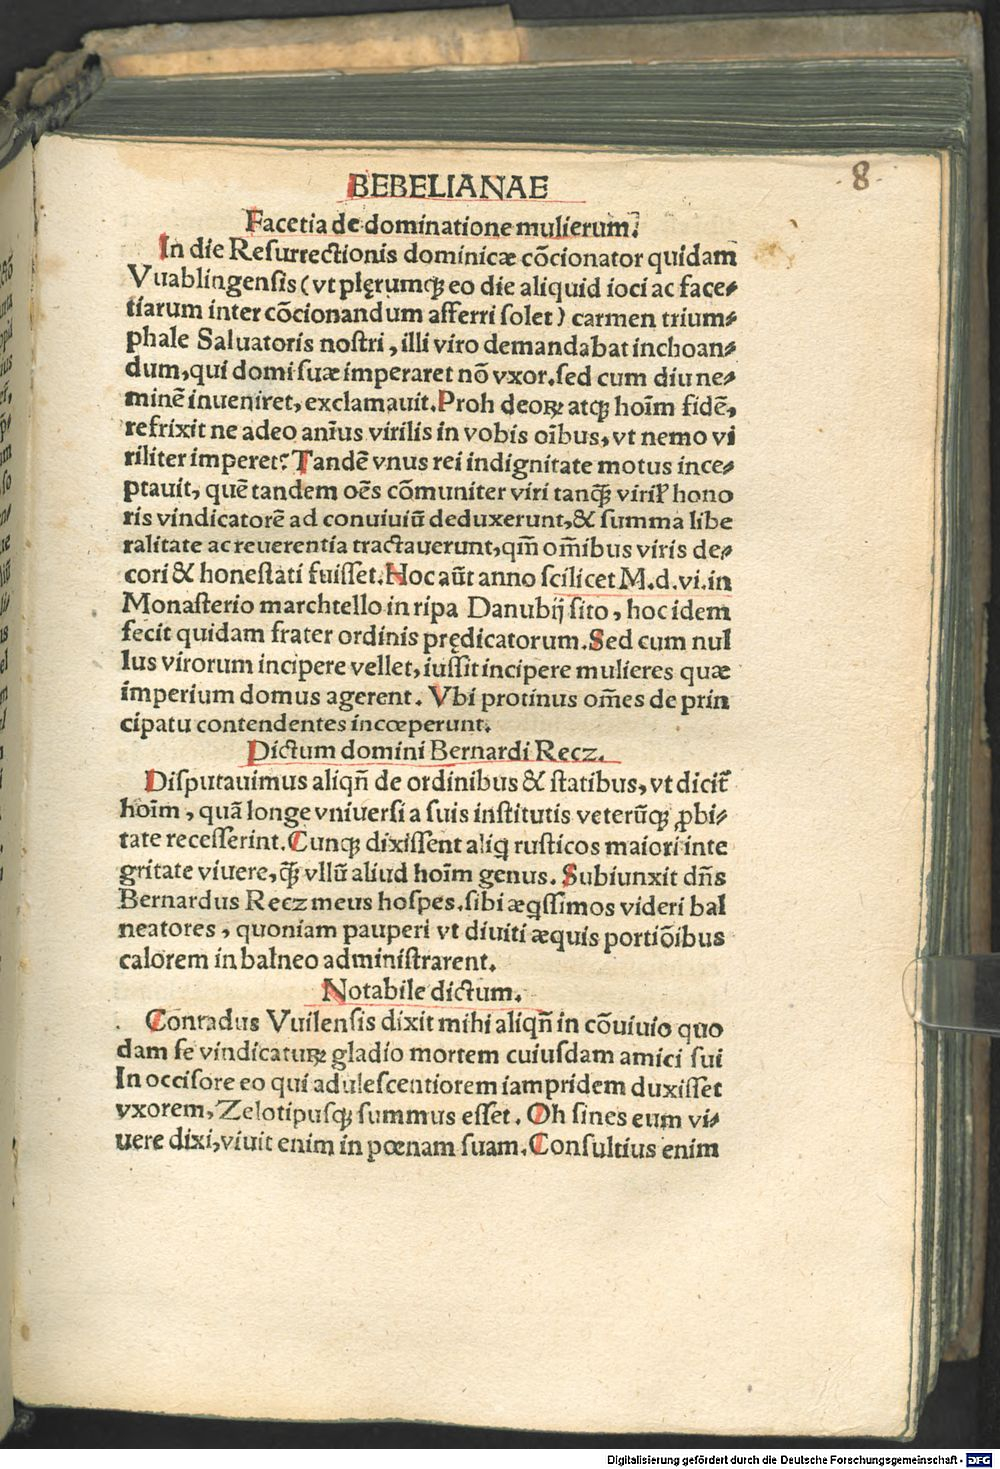 BEBELIANAE
8
Facetia de dominatione mulierum.
In die Resurrectionis dominicæ cōcionator quidam
Vuablingensis (vt plęrumq; eo die aliquid ioci ac face⸗
tiarum inter cōcionandum afferri solet) carmen trium⸗
phale Saluatoris nostri, illi viro demandabat inchoan⸗
dum, qui domi suæ imperaret nō vxor. sed cum diu ne⸗
minē inueniret, exclamauit. Proh deoꝝ atq; hoīm fidē,
refrixit ne adeo aniūs virilis in vobis oībus, vt nemo vi
riliter imperet? Tandē vnus rei indignitate motus ince⸗
ptauit, quē tandem oēs cōmuniter viri tanq̄; viril' hono
ris vindicatorē ad conuiuiū deduxerunt, & summa libe
ralitate ac reuerentia tractauerunt, qm̄ om̄ibus viris de⸗
cori & honestati fuisset. Hoc aūt anno scilicet M.d.vi. in
Monasterio marchtello in ripa Danubij sito, hoc idem
fecit quidam frater ordinis prędicatorum. Sed cum nul
lus virorum incipere vellet, iussit incipere mulieres quæ
imperium domus agerent. Vbi protinus om̄es de prin
cipatu contendentes incœperunt.
Dictum domini Bernardi Recz.
Disputauimus aliqn̄ de ordinibus & statibus, vt dicit̄
hoīm, quā longe vniuersi a suis institutis veterūq; ꝓbi⸗
tate recesserint. Cunq; dixissent aliq̣ rusticos maiori inte
gritate viuere, q̄; vllū aliud hoīm genus. Subiunxit dn̄s
Bernardus Recz meus hospes. sibi æq̣ssimos videri bal
neatores, quoniam pauperi vt diuiti æquis portiōibus
calorem in balneo administrarent.
Notabile dictum.
Conradus Vuilensis dixit mihi aliqn̄ in cōuiuio quo
dam se vindicatuꝝ gladio mortem cuiusdam amici sui
In occisore eo qui adulescentiorem iampridem duxisset
vxorem, Zelotipusq; summus esset. Oh sines eum vi⸗
uere dixi, viuit enim in pœnam suam. Consultius enim
Digitalisierung gefördert durch die Deutsche Forschungsgemeinschaft - DFG